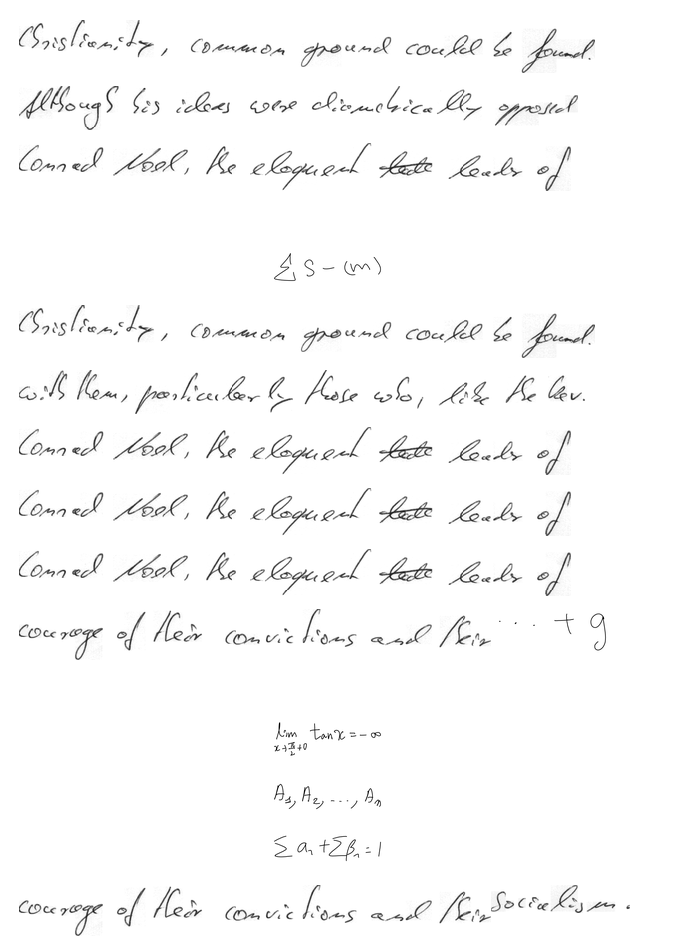 Christianity, common ground could be found.
Although his ideas were diametrically opposed
Conrad Noel, the eloquent leader of
∑ S - (m)
Christianity, common ground could be found.
with them, particularly those who, like the Rev.
Conrad Noel, the eloquent leader of
Conrad Noel, the eloquent leader of
Conrad Noel, the eloquent leader of
courage of their convictions and their ... + g
lim_{x→π/2+0} tan x = -∞
A₁, A₂, ..., Aₙ
∑ a₁ + ∑ β₁ = 1
courage of their convictions and their Socialism.